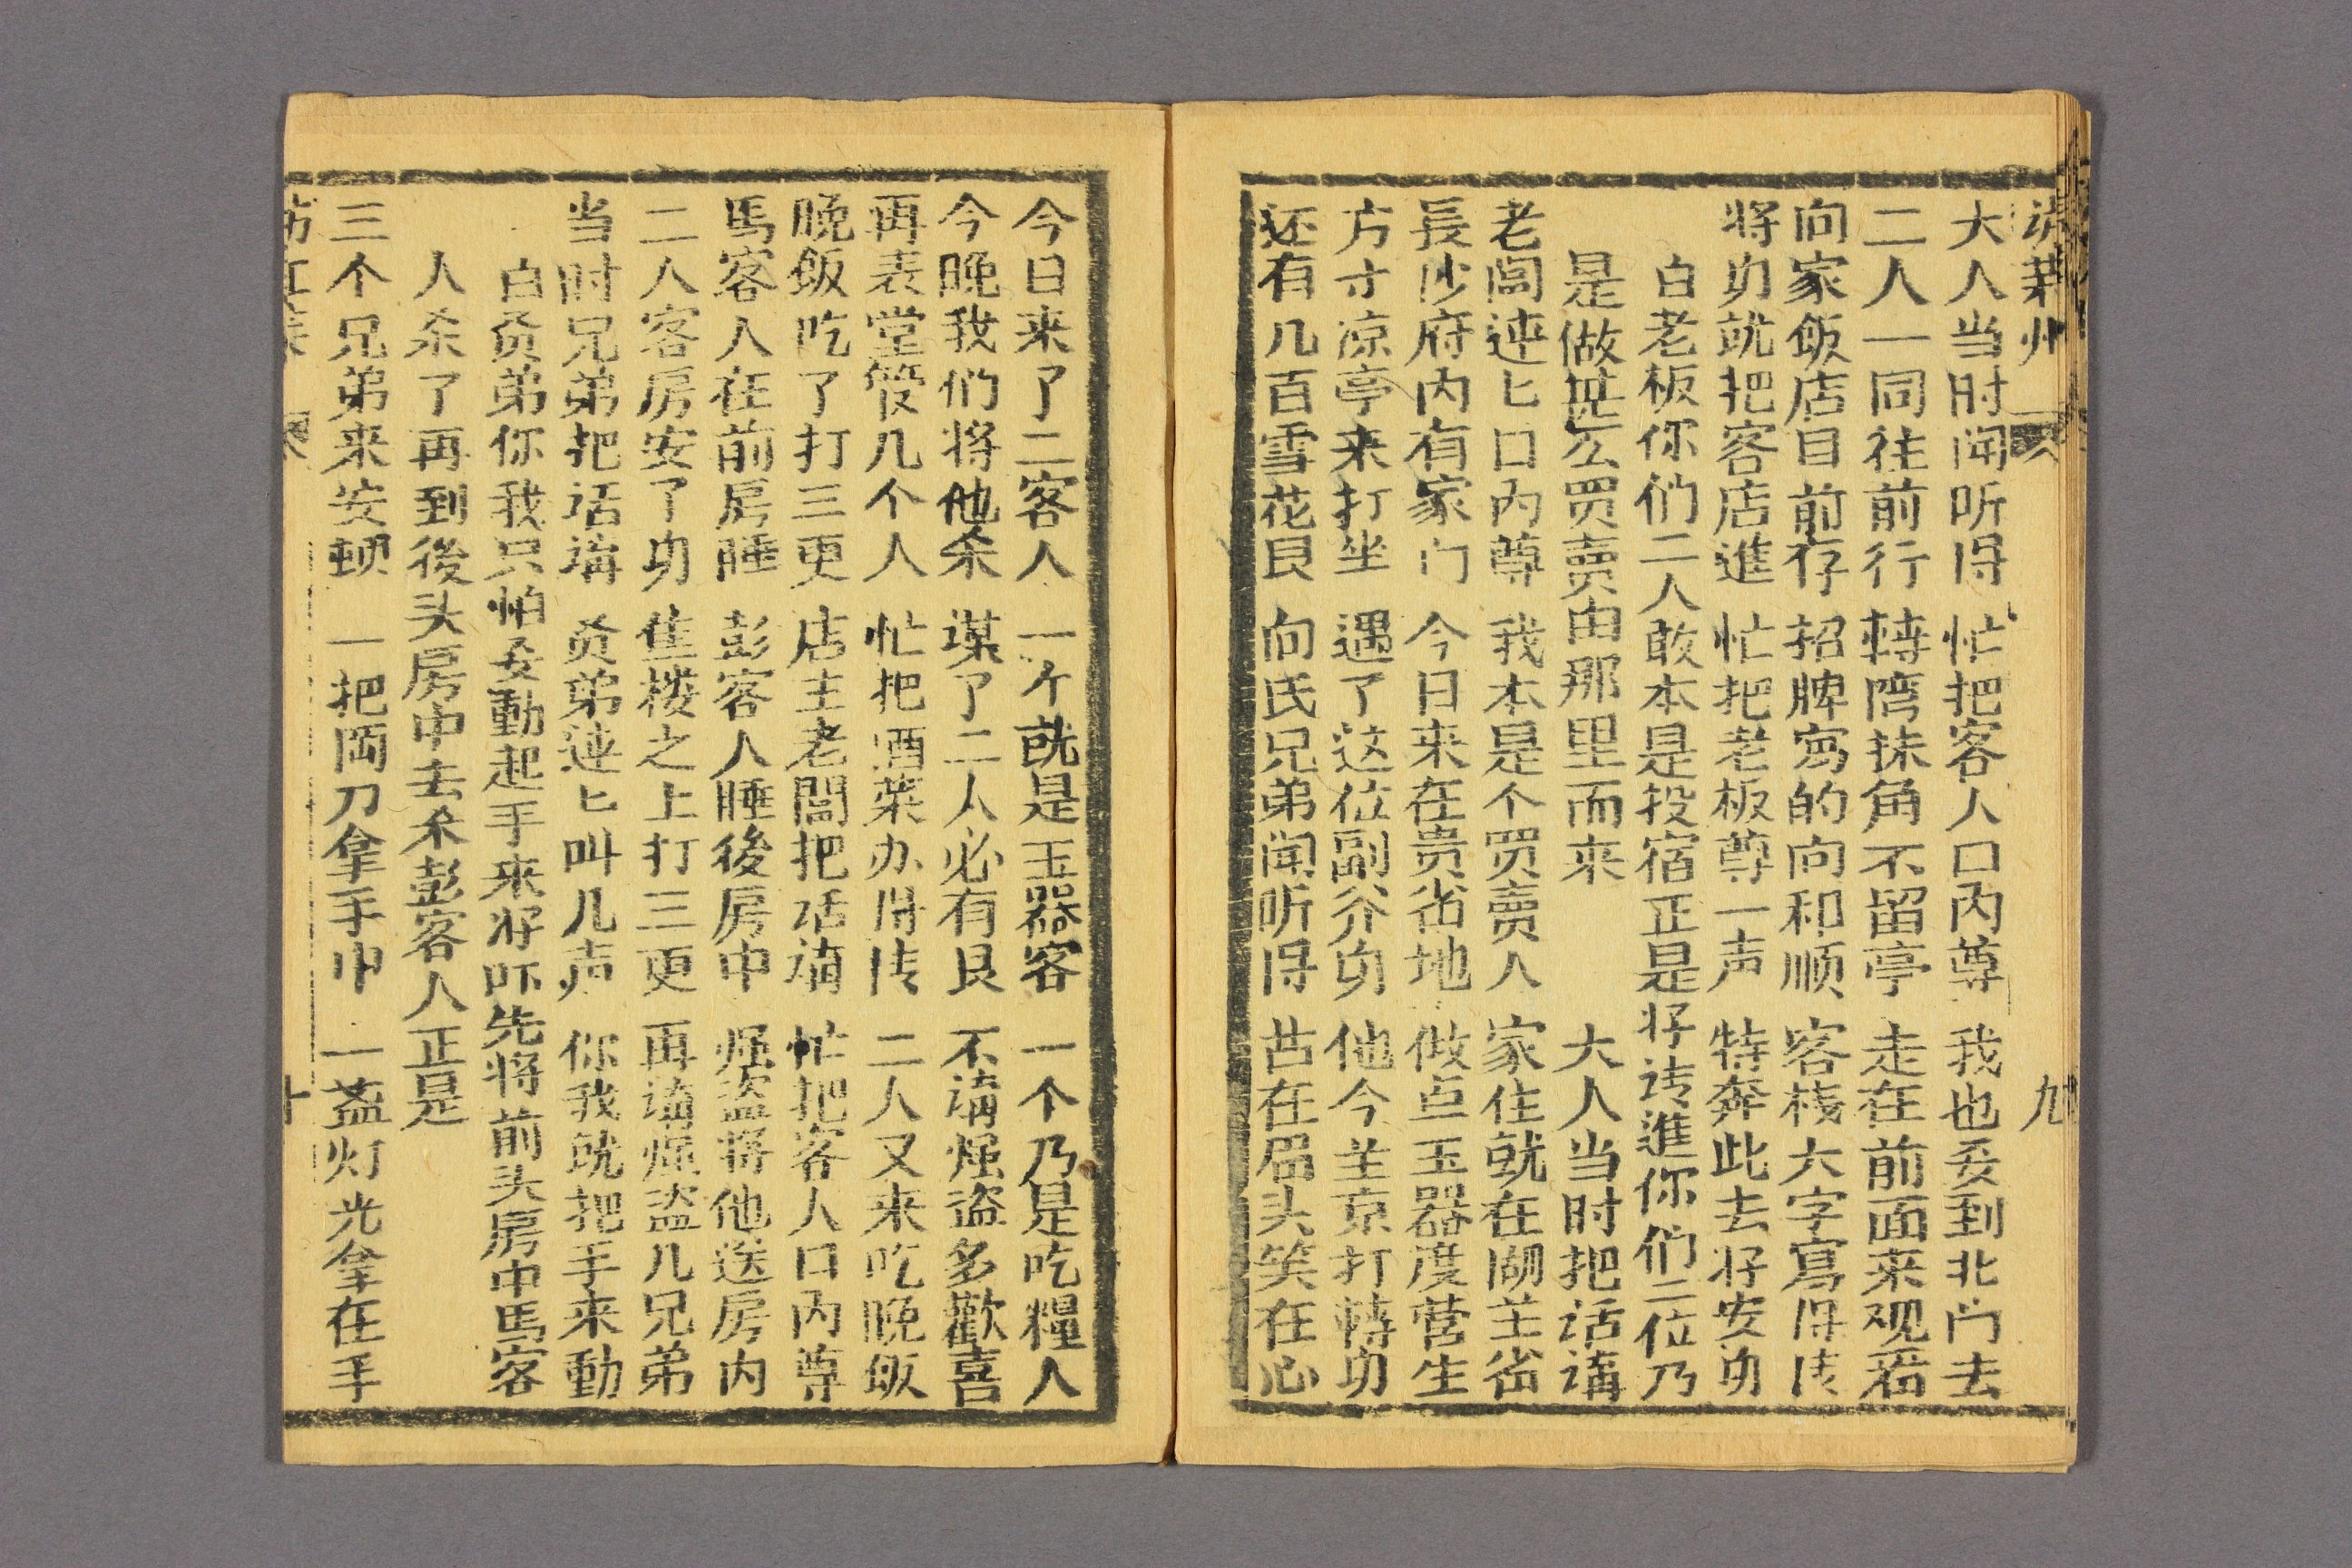 访荆州 九
大人当时闻听得 忙把客人口内尊 我也要到北门去
二人一同往前行 轉湾抹角不留亭 走在前面来观看
向家飯店目前存 招牌寫的向和顺 客栈大字寫得清
将身就把客店進 忙把老板尊一声 特奔此去好安身
白老板你们二人敢本是投宿正是好请進你们二位乃
是做甚么买賣由那里而来 大人当时把话講
老闆連匕口内尊 我本是个买賣人 家住就在湖广省
長沙府内有家门 今日来在贵省地 做点玉器度营生
方才凉亭来打坐 遇了这位副爷身 他今上京打轉身
还有几百雪花艮 向氏兄弟闻听得 苦在眉头笑在心
今日来了二客人 一个就是玉器客 一个乃是吃糧人
今晚我们将他杀 谋了二人必有艮 不講强盗多歡喜
再表堂官几个人 忙把酒菜办得清 二人又来吃晚飯
晚飯吃了打三更 店主老闆把话講 忙把客人口内尊
馬客人在前房睡 彭客人睡後房中 强盗将他送房内
二人客房安了身 焦楼之上打三更 再講强盗几兄弟
当时兄弟把话講 贤弟連匕叫几声 你我就把手来動
白贤弟你我只怕要動起手来好吓先将前头房中馬客
人杀了再到後头房中去杀彭客人正是
三个兄弟来安頓 一把岡刀拿手中 一盏灯光拿在手
十